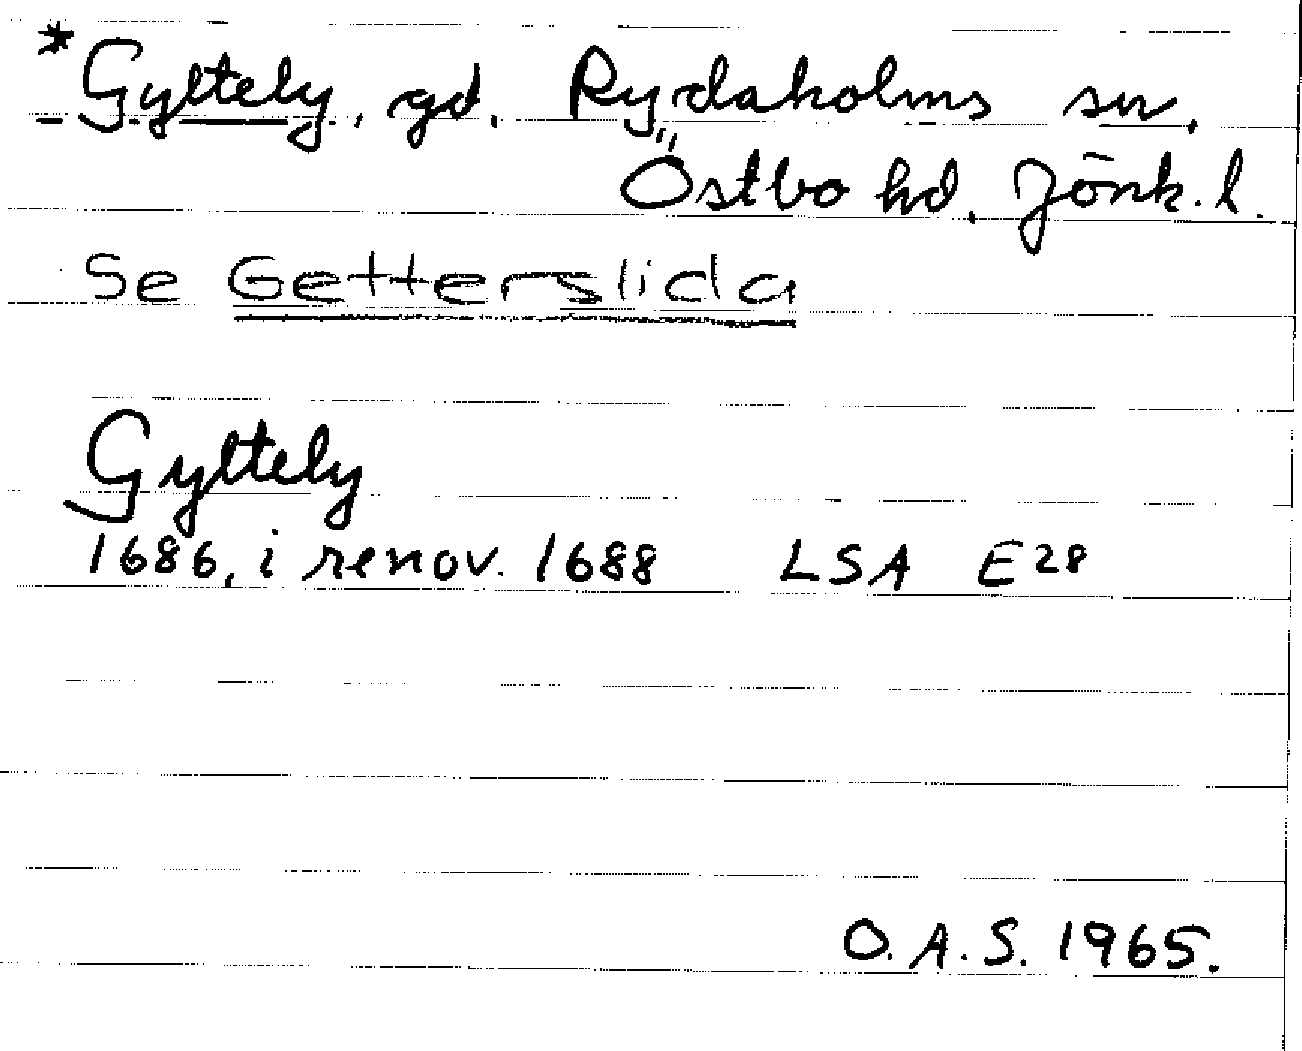 *Gyltely, gd. Rydaholms sn,
Östbo hd, Jönk. l.
Se Getterslida
Gyltely
1686, i renov. 1688 LSA E28
O.A.S. 1965.